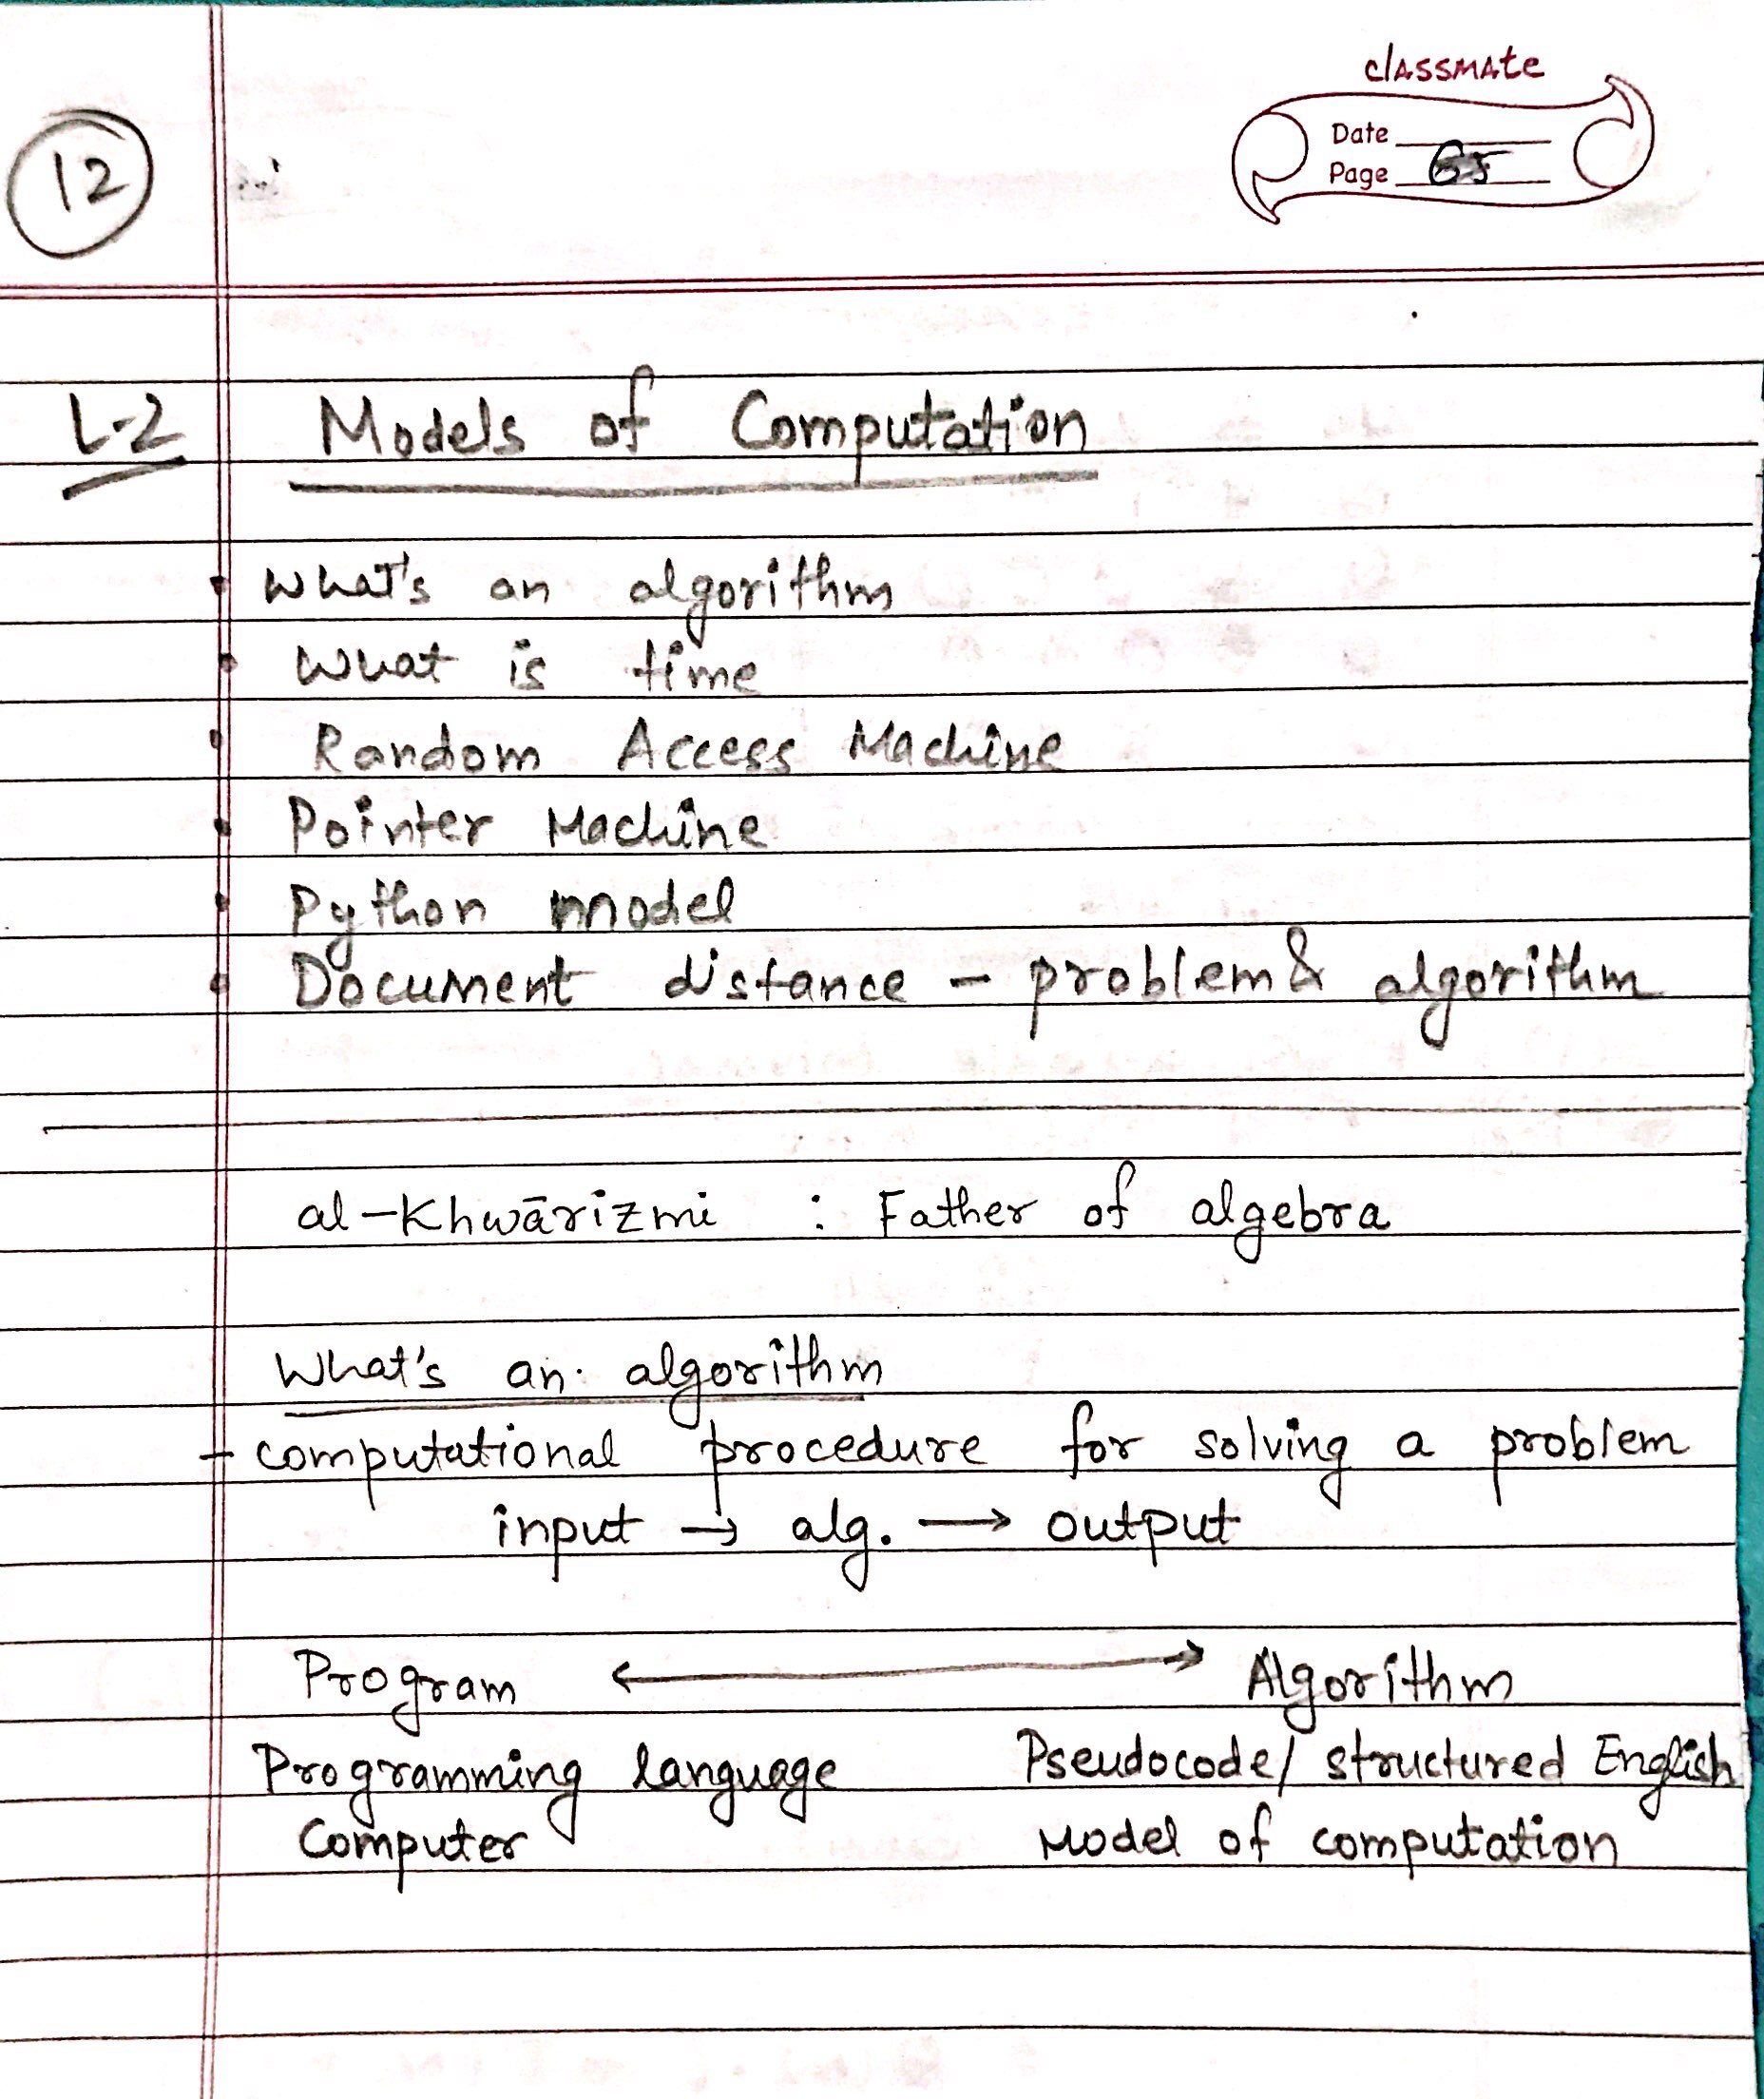 classmate
Date
Page
12
L-2 Models of Computation
What's an algorithm
What is time
Random Access Machine
Pointer Machine
Python model
Document distance - problem & algorithm
al-Khwārizmi : Father of algebra
What's an algorithm
- computational procedure for solving a problem
input → alg. → output
Program ↔ Algorithm
Programming language Pseudocode/ structured English
Computer Model of computation